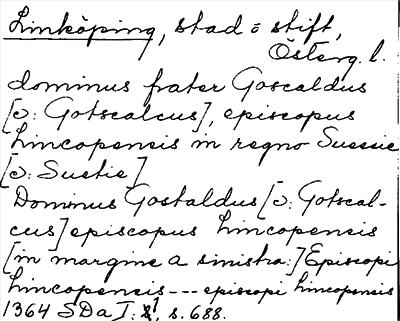 Linköping, stad o stift,
Österg. l.
dominus frater Goscaldus
[ɔ: Gotscalcus], episcopus
lincopensis in regno Suessie
[ɔ: Suetie]
Dominus Gostaldus [ɔ: Gotscal-
cus] episcopus lincopensis
[in margine a sinistra:] Episcopi
lincopensis --- episcopi lincopensis
1364 SDa I: 1, s. 688.